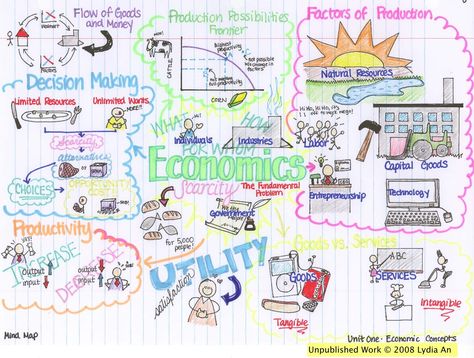 Flow of Goods
and Money
Production Possibilities
Frontier
highest
productivity
not possible
w/o change in
factors
not maximum
productivity
CATTLE
CORN
Factors of Production
Natural Resources
Labor
Capital Goods
Entrepreneurship
Technology
Decision Making
Limited Resources
Unlimited Wants
MORE!
Scarcity
alternatives
CHOICES
OPPORTUNITY
WHAT
HOW
FOR WHOM
Individuals
Industries
Economics
Scarcity
The Fundamental
Problem
Government
We the
for 5,000
people?
Productivity
INCREASE
DECREASE
output
input
output
input
UTILITY
satisfaction
Goods vs. Services
GOODS
Tangible
ABC
SERVICES
Intangible
Mind Map
Unit One: Economic Concepts
Unpublished Work © 2008 Lydia An